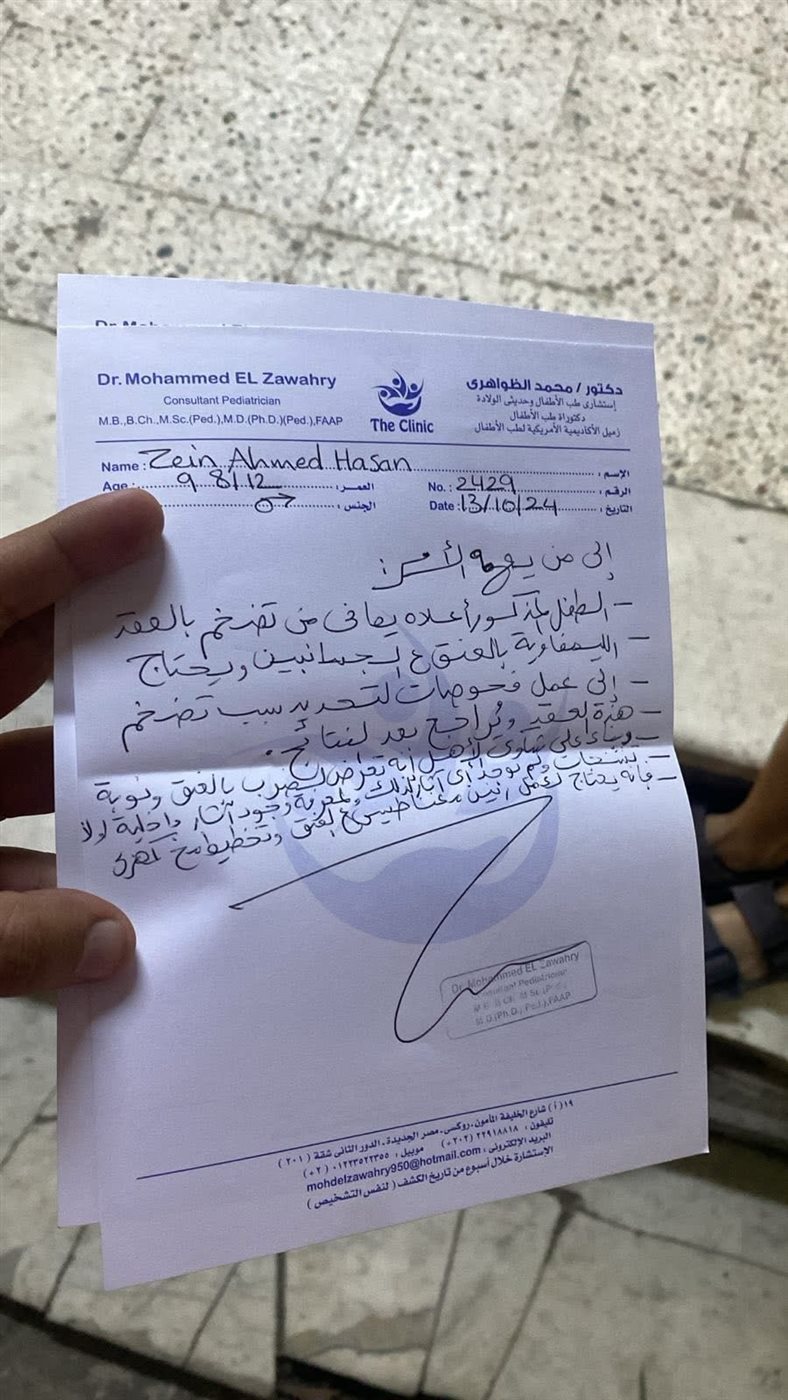 Dr. Mohammed EL Zawahry
Consultant Pediatrician
M.B.,B.Ch.,M.Sc.(Ped.),M.D.(Ph.D.)(Ped.),FAAP
The Clinic
دكتور / محمد الظواهرى
إستشارى طب الأطفال وحديثى الولادة
دكتوراة طب الأطفال
زميل الأكاديمية الأمريكية لطب الأطفال
Name : Zein Ahmed Hasan الإسم :
Age : 9 8/12 العمر : No. : 2429 الرقم :
♂ الجنس : Date : 13/10/24 التاريخ :
إلى من يهمه الأمر:
- الطفل المذكور أعلاه يعانى من تضخم بالعقد
- الليمفاوية بالعنق ع الجانبين ويحتاج
- إلى عمل فحوصات لتحديد سبب تضخم
- هذه العقد ويُراجع بعد النتائج.
- وبناء على شكوى الأهل أنه تعرض لضرب بالعنق ونوبة
- تشنجات ولم توجد أى آثار لذلك ولمعرفة وجود آثار داخلية أولا
- فإنه يحتاج لعمل رنين مغناطيسى ع العنق وتخطيط مخ
Dr. Mohammed EL Zawahry
Consultant Pediatrician
M.D.(Ph.D., Ped.),FAAP
١٩ ( أ ) شارع الخليفة المأمون. روكسى. مصر الجديدة. الدور الثانى شقة ( ٢٠١ )
تليفون : ٢٢٩١٨٨١٨ (٢٠٢+) موبيل : ٠١٢٢٣٥٢٢٣٥٥ (٢+)
البريد الإلكترونى : mohdelzawahry950@hotmail.com
الإستشارة خلال أسبوع من تاريخ الكشف ( لنفس التشخيص )